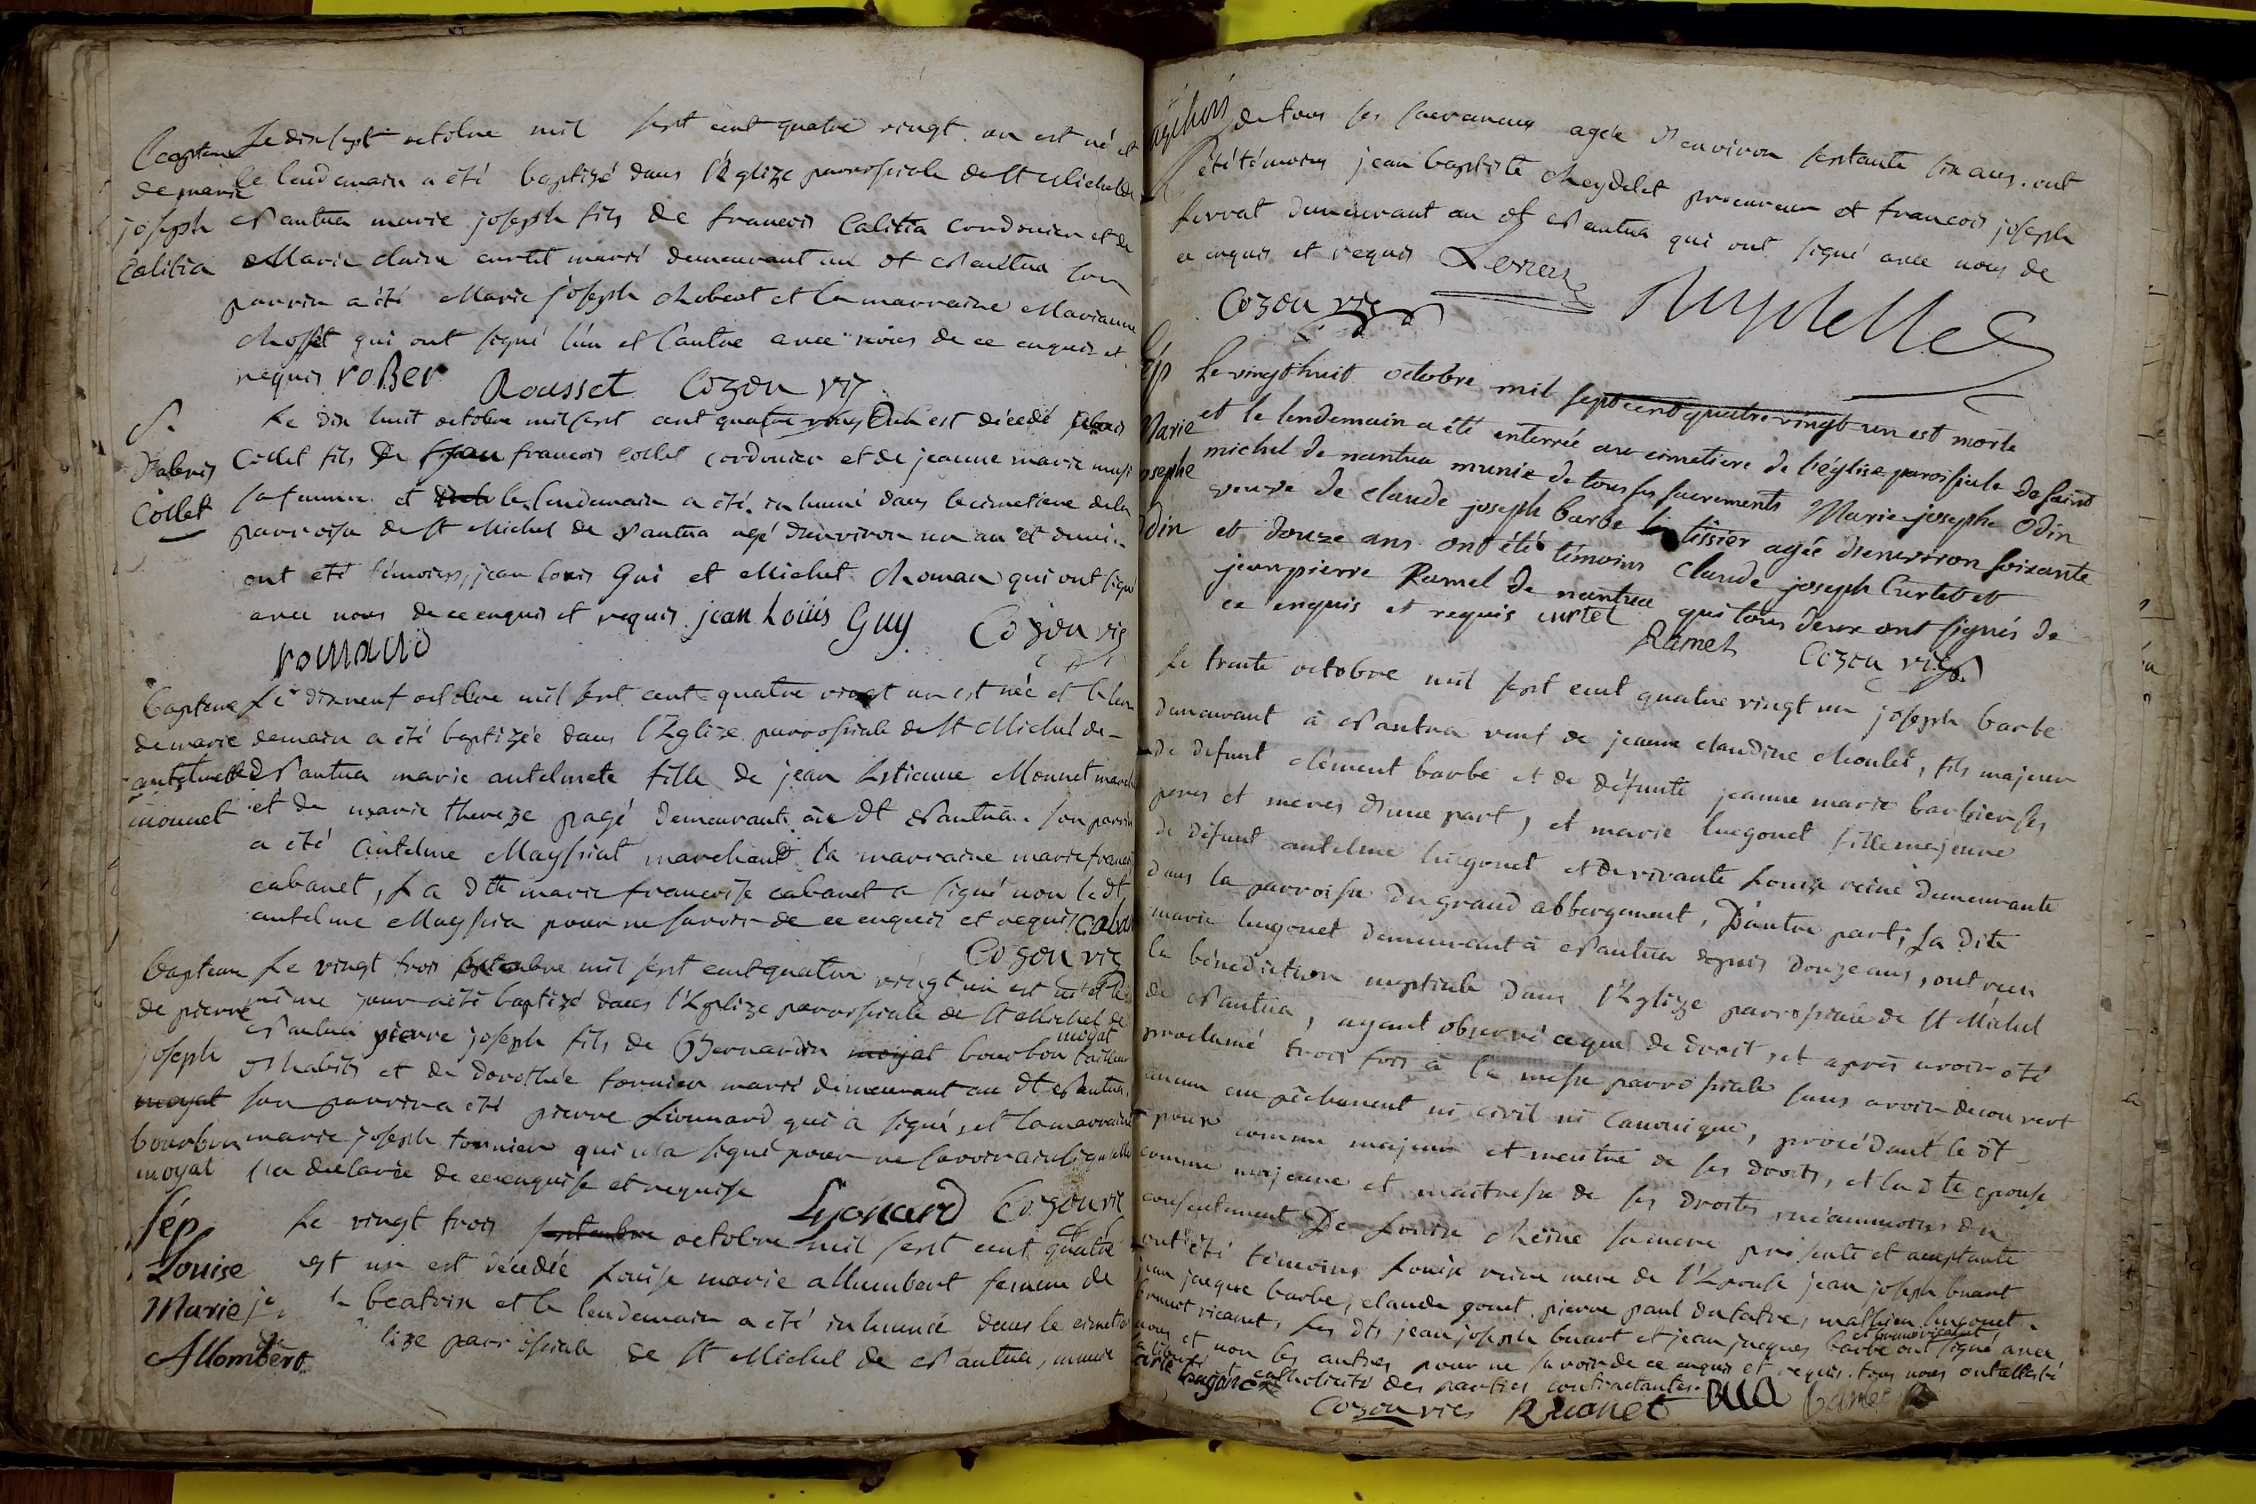 Bapteme Le dix sept octobre mil sept cent quatre vingt un est né et
de marie le lendemain a été baptizé dans l'Eglize parrossiale de St Michel de
joseph Nantua marie joseph fils de francois Calitia cordonier et de
Calitia Marie claire curtet marié demeurant au dt Nantua son
parrin a été Marie joseph Robert et la marraine Marianne
qui ont signé l'un et l'autre avec nous de ce enquis et
requis roBer Rousset Cozon vic
S. Le dix huit octobre mil sept cent quatre vingt un est décédé
Collet fils de jean francois Collet cordonier et de jeanne marie
Collet sa femme et le lendemain a été inhumé dans le cimetiere de la
parroisse de St Michel de Nantua agé d'environ un an et demi.
ont été témoins, jean Louis Gui et Michel Roman qui ont signé
avec nous de ce enquis et requis jean Loüis Guy Cozon vic
romand
Bapteme Le dixneuf octobre mil sept cent quatre vingt un est née et le len
de marie demain a été baptizée dans l'Eglize parrossiale de St Michel de
antelmette Nantua marie antelmete fille de jean Estienne Monnet march
monnet et de marie thereze pagé demeurants au dt Nantua. son parrin
a été antelme Mayssiat marchand la marraine marie francoi
cabanet, La dtte marie francoise cabanet a signé non le dt
antelme Mayssia pour ne savoir de ce enquis et requis caban
Cozon vic
bapteme Le vingt trois octobre mil sept cent quatre vingt un est né et le
de pierre même jour a été baptizé dans l'Eglize parrossiale de St Michel de
joseph Nantua pierre joseph fils de Bernardin moyat bourbon moyat tailleur
moyat d'habits et de dorothée tornier marié demeurant au dt Nantua.
bourbon son parrin a été pierre Lionnard qui a signé, et la marraine
moyat marie joseph tornier qui n'a signé pour ne savoir ainsi qu'elle
l'a declaré de ce enquise et requise Lyonard Cozon vic
Sép Le vingt trois septembre octobre mil sept cent quatre
Louise est un est décédée Louise marie allumbert femme de
Marie beatrix et le lendemain a été inhumée dans le cimetie
Allombert lize parrossiale de St Michel de Nantua, munie
de tous ses sacremens agée d'environ septante six ans. ont
été témoins jean baptiste Reydelet procureur et francois joseph
ferrat demeurant au dt Nantua qui ont signé avec nous de
ce enquis et requis
Cozon vic Reydellet
Sép Le vingt huit octobre mil sept cent quatre-vingt un est morte
Marie et le lendemain a été enterrée au cimetiere de l'église paroissiale de saint
josephe michel de nantua munie de tous ses sacrements Marie-josephe Odin
Odin veuve de claude joseph barbe tissier agée d'environ soixante
et douze ans ont été témoins Claude joseph Curtet et
jean pierre Ramel de nantua qui tous deux ont signés de
ce enquis et requis curtet Ramel Cozon vic
Le trente octobre mil sept cent quatre vingt un joseph barbe
demeurant à Nantua veuf de jeanne claudine Moulet, fils majeur
de defunt clément barbe et de défunte jeanne marie barbier ses
peres et meres d'une part, et marie hugonet fille majeure
de défunt antelme hugonet et de vivante Louise reine demeurante
dans la parroisse du grand abbergement, d'autre part; La dite
marie hugonet demeurant à Nantua depuis douze ans, ont recu
la bénédiction nuptiale dans l'Eglize parrossiale de St Michel
de Nantua, ayant observé ce que de droit, et après avoir été
proclamé trois fois à la messe parrossiale sans avoir decouvert
aucun empêchement ni civil ni canonique, procédant le dt
époux comme majeur et maitre de ses droits, et la dte epouse
comme majeure et maitresse de ses droits, néanmoins du
consentement De Louise Reine sa mere présente et acceptante
ont été témoins Louise reine mere de l'Epouse jean joseph buart
jean jacque barbe, claude gonet pierre paul dutatre, mathieu hugonet
brunot ricanet, Les dts jean joseph buart et jean jacques barbe et bruno ricanet ont signé avec
nous et non les autres pour ne savoir de ce enquis et requis. tous nous ont attesté
catholicité des parties contractantes.
Cozon vic Ricanet